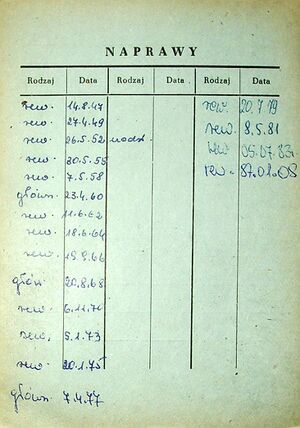 NAPRAWY
Rodzaj Data Rodzaj Data Rodzaj Data
rew. 14.8.47 rew. 20.7.79
rew. 27.4.49 rew. 8.5.81
rew. 26.5.52 rew. 05.07.83
rew. 20.5.55 rew. 87.01.08
rew. 7.5.58
główn. 23.4.60
rew. 11.6.62
rew. 18.6.64
rew. 19.9.66
główn. 20.8.68
rew. 6.11.70
rew. 5.1.73
rew. 20.1.75
główn. 7.4.77